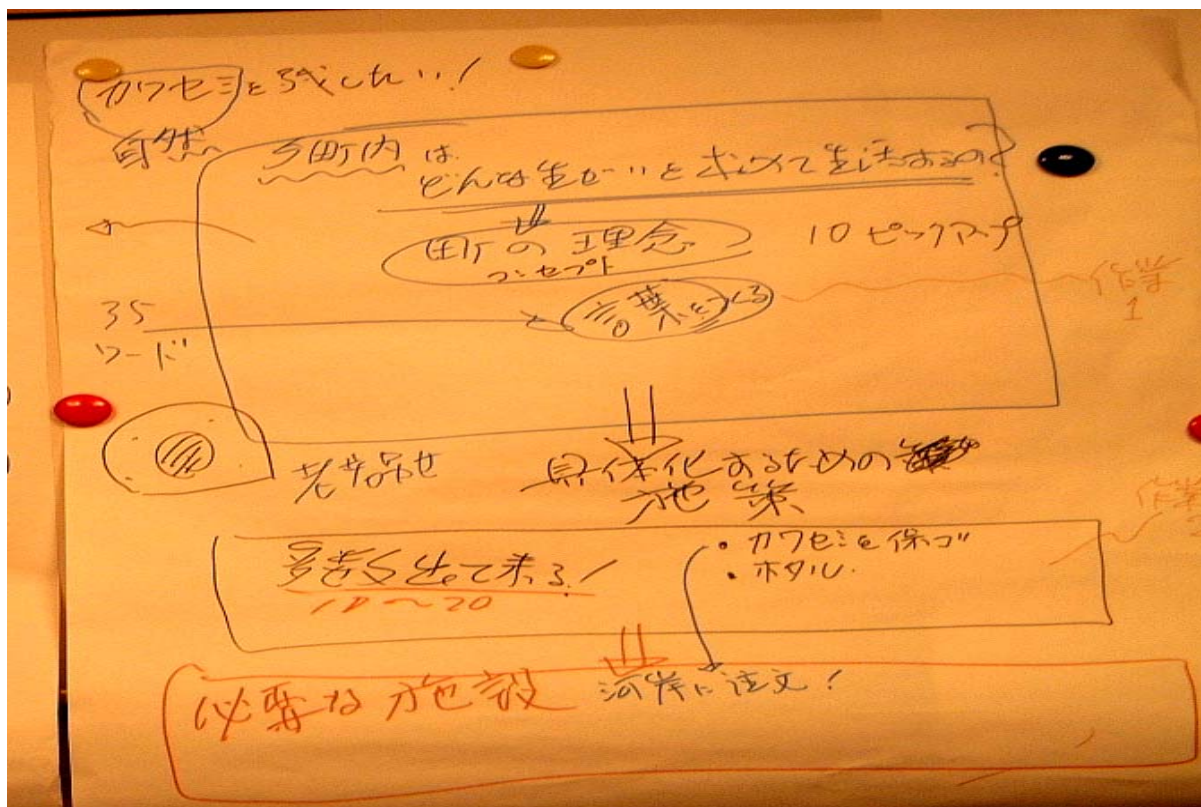 カワセミを残したい!
自然
5町内は
どんな生ガいを求めて生活するの?
町の理念
コンセプト
10ピックアップ
言葉をつくる
作業
1
35
ワード
具体化するための
施策
作業
多数出て来る!
10〜20
・カワセミを保ゴ
・ホタル
必要な施設
河岸に注文!